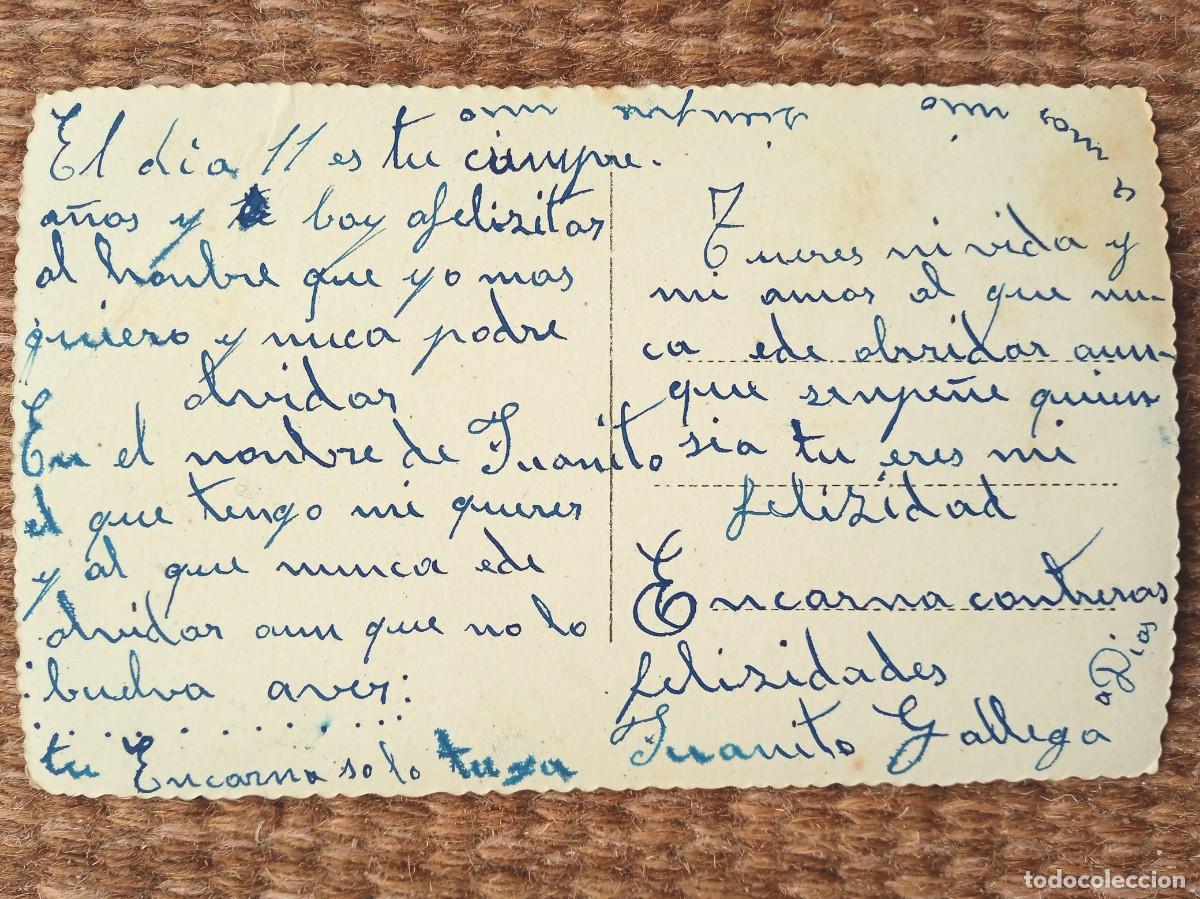 El dia 11 es tu cunpre.
años y te boy afelizitar
al honbre que yo mas
quiero y nuca podre
olvidar
En el nonbre de Juanito
el que tengo mi querer
y al que nunca ede
olvidar aun que no lo
buelva aver:
tu Encarna solo tuya
Tu eres mi vida y
mi amor al que nu-
ca ede obridar aun-
que senpeñe quien
sia tu eres mi
felizidad
Encarna contreras
felizidades
Juanito Gallega
aDios
todocoleccion